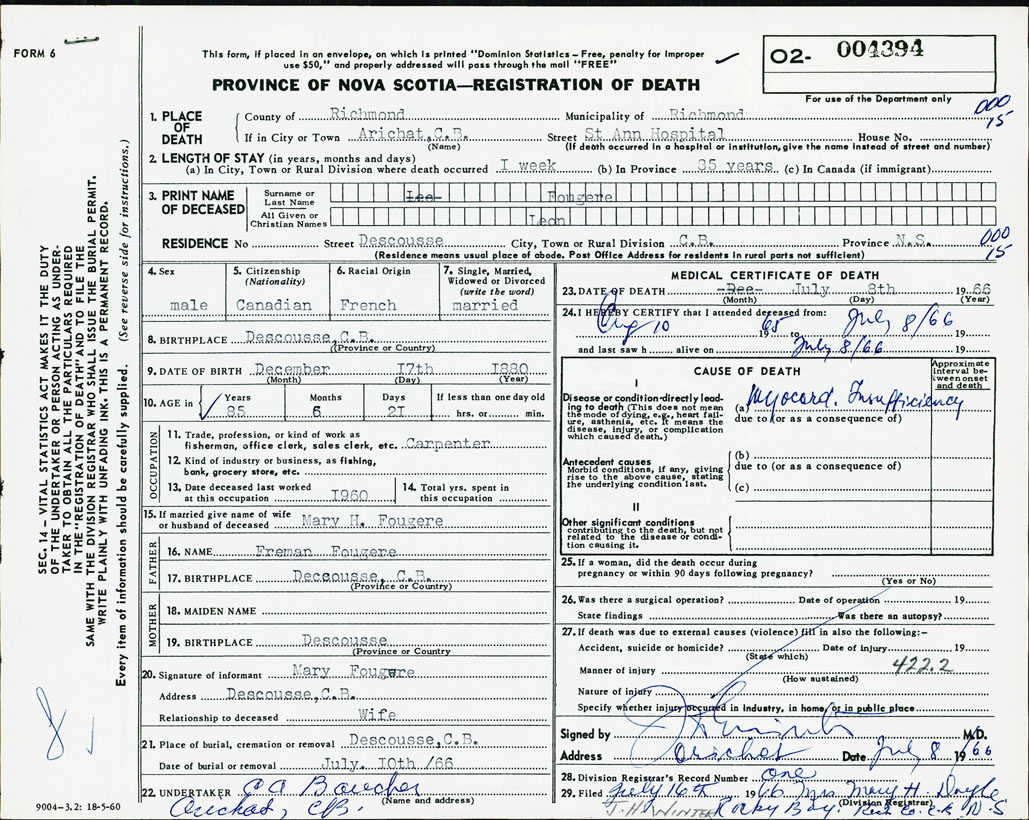 FORM 6
This form, if placed in an envelope, on which is printed "Dominion Statistics – Free, penalty for improper
use $50," and properly addressed will pass through the mail "FREE"
O2- 004394
For use of the Department only
PROVINCE OF NOVA SCOTIA—REGISTRATION OF DEATH
1. PLACE OF DEATH
County of Richmond Municipality of Richmond
000
15
If in City or Town Arichat, C.B. Street St Ann Hospital House No.
(Name) (If death occurred in a hospital or institution, give the name instead of street and number)
2. LENGTH OF STAY (in years, months and days)
(a) In City, Town or Rural Division where death occurred I week (b) In Province 85 years (c) In Canada (if immigrant)
3. PRINT NAME OF DECEASED
Surname or Last Name Lee- Fougere
All Given or Christian Names Leon
RESIDENCE No Street Descousse City, Town or Rural Division C.B. Province N.S.
000
15
(Residence means usual place of abode. Post Office Address for residents in rural parts not sufficient)
4. Sex
male
5. Citizenship
(Nationality)
Canadian
6. Racial Origin
French
7. Single, Married, Widowed or Divorced
(write the word)
married
8. BIRTHPLACE Descousse, C.B.
(Province or Country)
9. DATE OF BIRTH December I7th I880
(Month) (Day) (Year)
10. AGE in Years 85 Months 6 Days 2I If less than one day old hrs. or min.
OCCUPATION
11. Trade, profession, or kind of work as
fisherman, office clerk, sales clerk, etc. Carpenter
12. Kind of industry or business, as fishing,
bank, grocery store, etc.
13. Date deceased last worked
at this occupation I960
14. Total yrs. spent in
this occupation
15. If married give name of wife
or husband of deceased Mary H. Fougere
FATHER
16. NAME Freman Fougere
17. BIRTHPLACE Descousse, C.B.
(Province or Country)
MOTHER
18. MAIDEN NAME
19. BIRTHPLACE Descousse
(Province or Country
20. Signature of informant Mary Fougere
Address Descousse, C.B.
Relationship to deceased Wife
21. Place of burial, cremation or removal Descousse, C.B.
Date of burial or removal July. IOth /66
22. UNDERTAKER C A Boucher
(Name and address)
Arichat, CB.
MEDICAL CERTIFICATE OF DEATH
23. DATE OF DEATH -Dec- July 8th 1966
(Month) (Day) (Year)
24. I HEREBY CERTIFY that I attended deceased from:
Aug 10 1965 to July 8/66 19
and last saw h alive on July 8/66 19
CAUSE OF DEATH
Approximate interval between onset and death
I
Disease or condition directly leading to death (This does not
mean the mode of dying, e.g., heart failure, asthenia, etc. It means the
disease, injury, or complication
which caused death.)
(a) Myocard. Insufficiency
due to (or as a consequence of)
Antecedent causes
Morbid conditions, if any, giving
rise to the above cause, stating
the underlying condition last.
(b)
due to (or as a consequence of)
(c)
II
Other significant conditions
contributing to the death, but not
related to the disease or condition
causing it.
25. If a woman, did the death occur during
pregnancy or within 90 days following pregnancy?
(Yes or No)
26. Was there a surgical operation? Date of operation 19
State findings Was there an autopsy?
27. If death was due to external causes (violence) fill in also the following:–
Accident, suicide or homicide? Date of injury 19
(State which)
Manner of injury 422.2
(How sustained)
Nature of injury
Specify whether injury occurred in industry, in home, or in public place
Signed by M.D.
Address Arichat Date July 8 1966
28. Division Registrar's Record Number One
29. Filed July 16th 1966 Mrs Mary H. Doyle
(Division Registrar)
J. H. WINTER Rocky Bay. Rich Co. C.B. N.S
SEC. 14 – VITAL STATISTICS ACT MAKES IT THE DUTY
OF THE UNDERTAKER OR PERSON ACTING AS UNDERTAKER
TO OBTAIN ALL THE PARTICULARS REQUIRED
IN THE "REGISTRATION OF DEATH" AND TO FILE THE
SAME WITH THE DIVISION REGISTRAR WHO SHALL ISSUE THE BURIAL PERMIT.
WRITE PLAINLY WITH UNFADING INK. THIS IS A PERMANENT RECORD.
Every item of information should be carefully supplied. (See reverse side for instructions.)
9004-3.2: 18-5-60